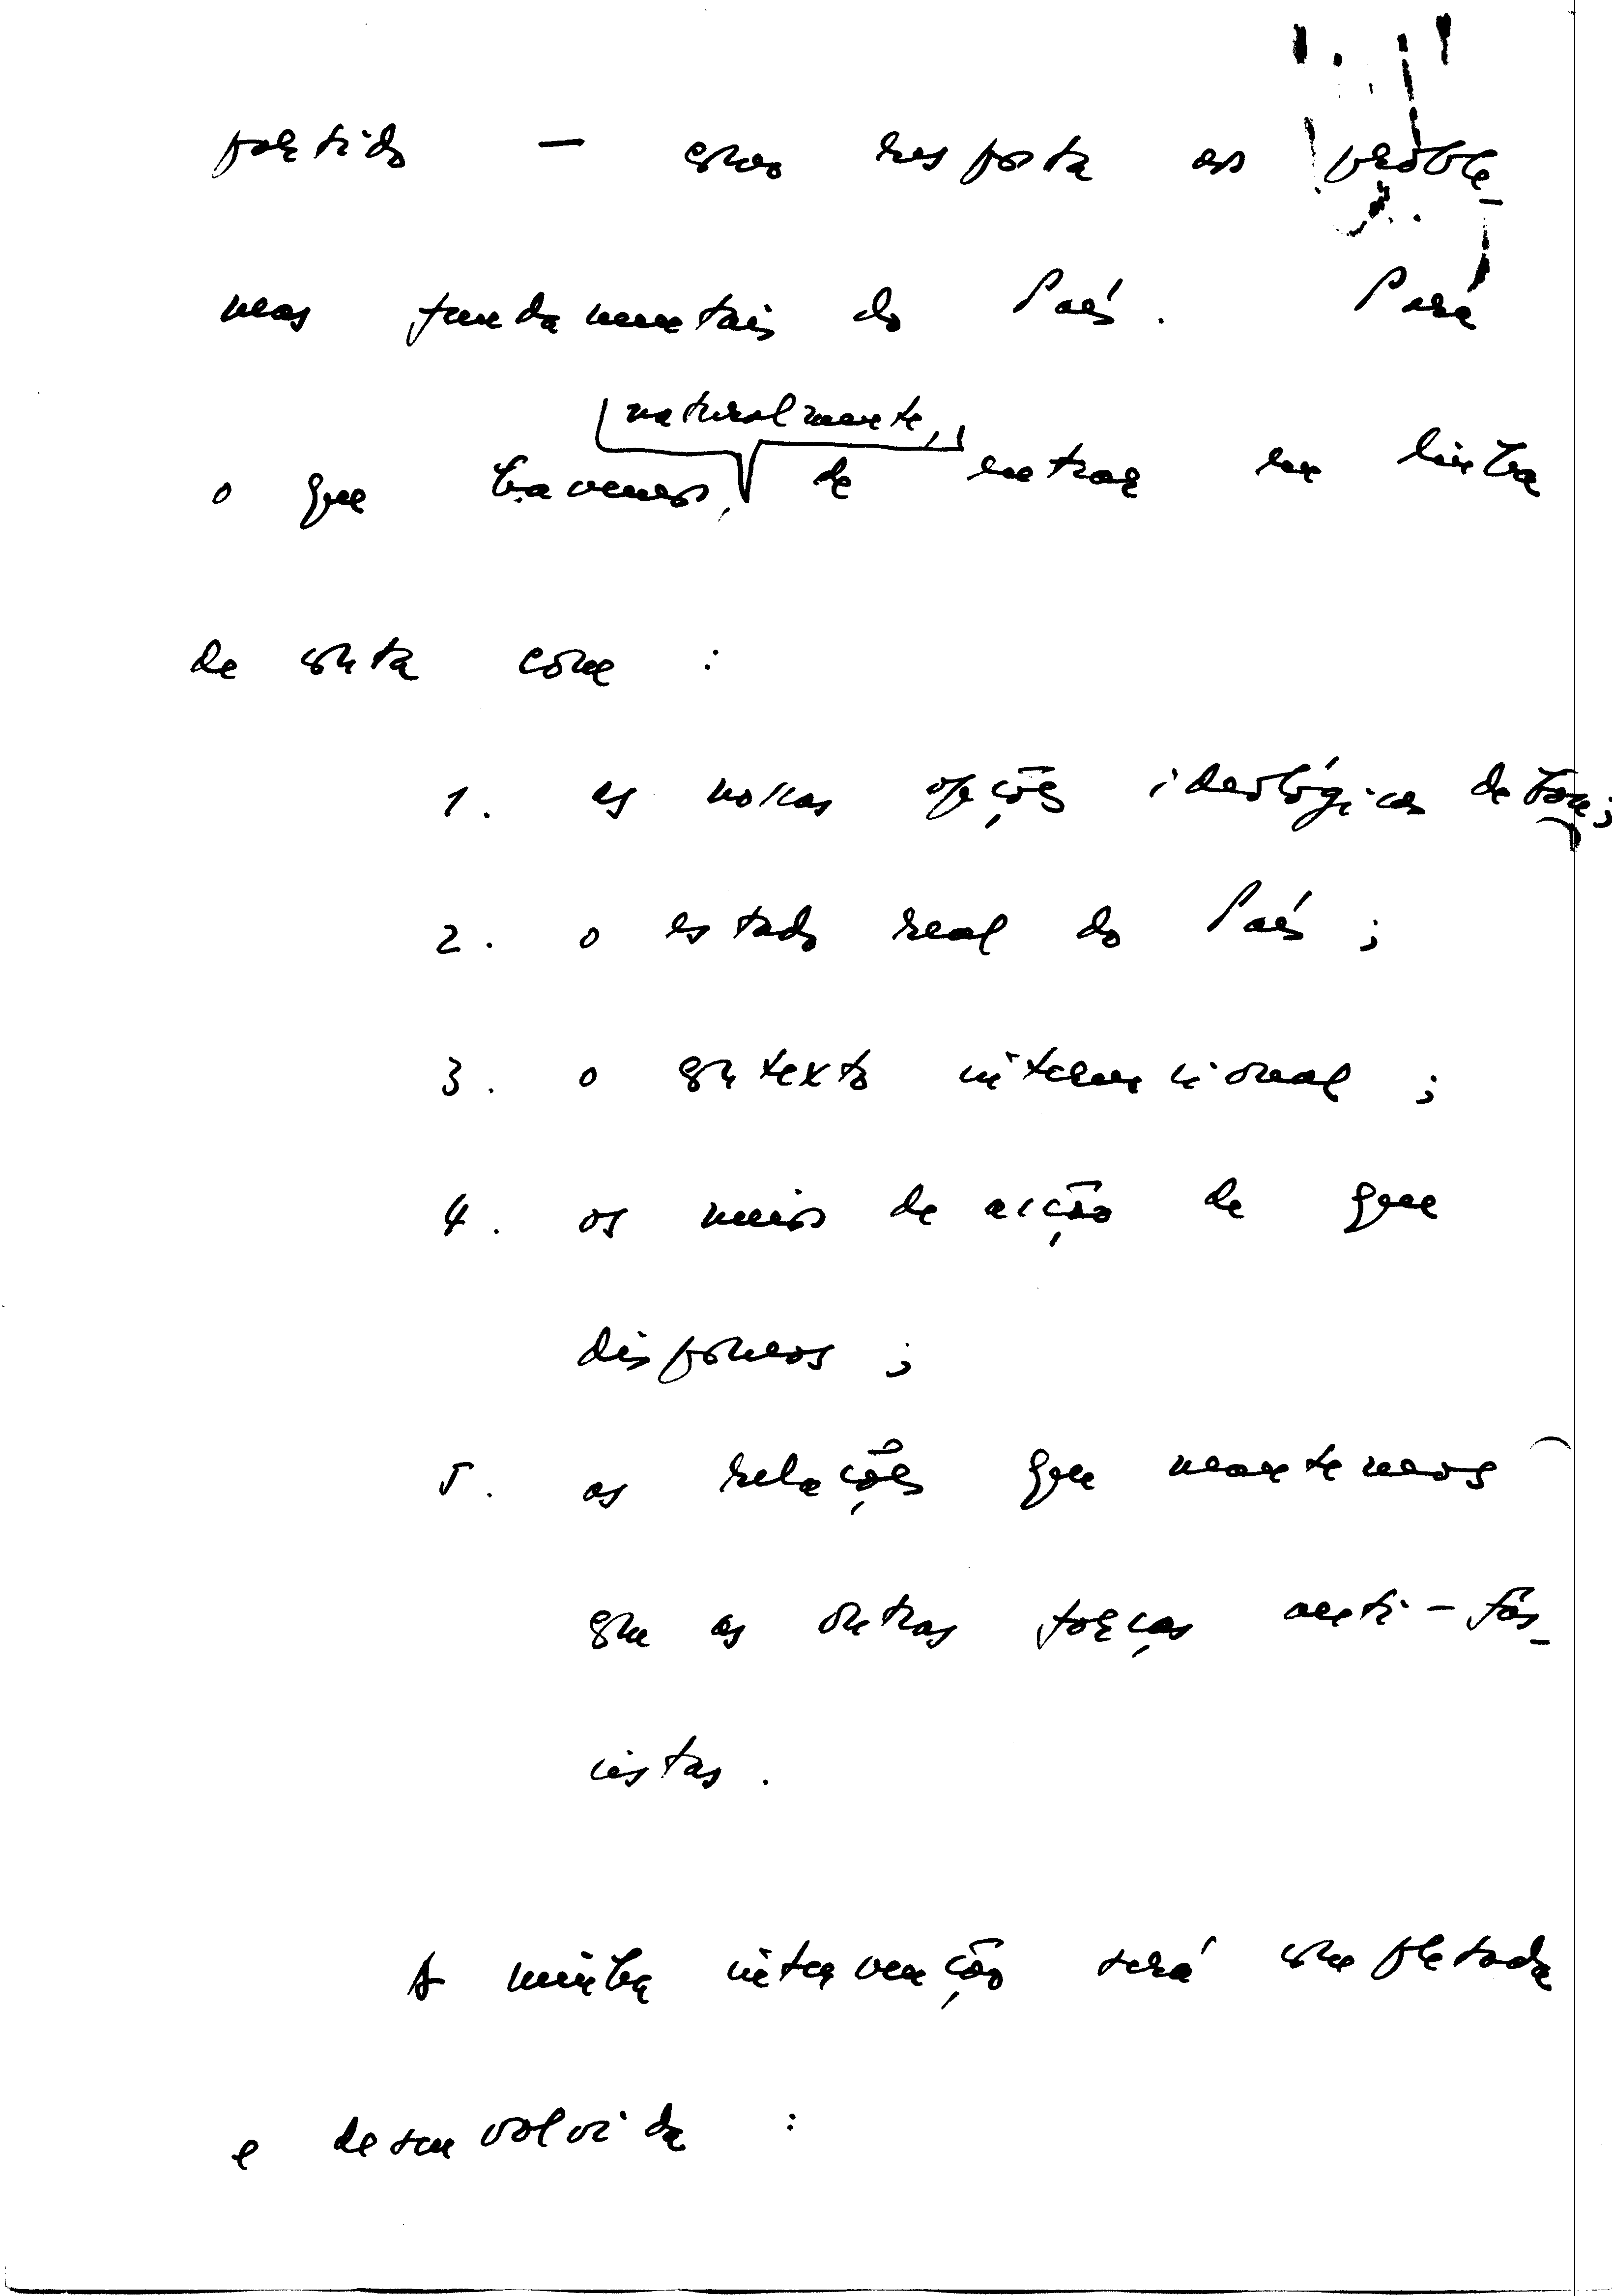 partido — como resposta aos proble-
mas fundamentais do País. Para
naturalmente,
o que havemos, de entrar em linha
de conta com :
1. as nossas opções ideológicas de base;
2. o estado real do País ;
3. o contexto internacional ;
4. os meios de acção de que
dispomos ;
5. as relações que mantemos
com as outras forças anti-fas-
cistas.
A minha intervenção será completada
e desenvolvida :